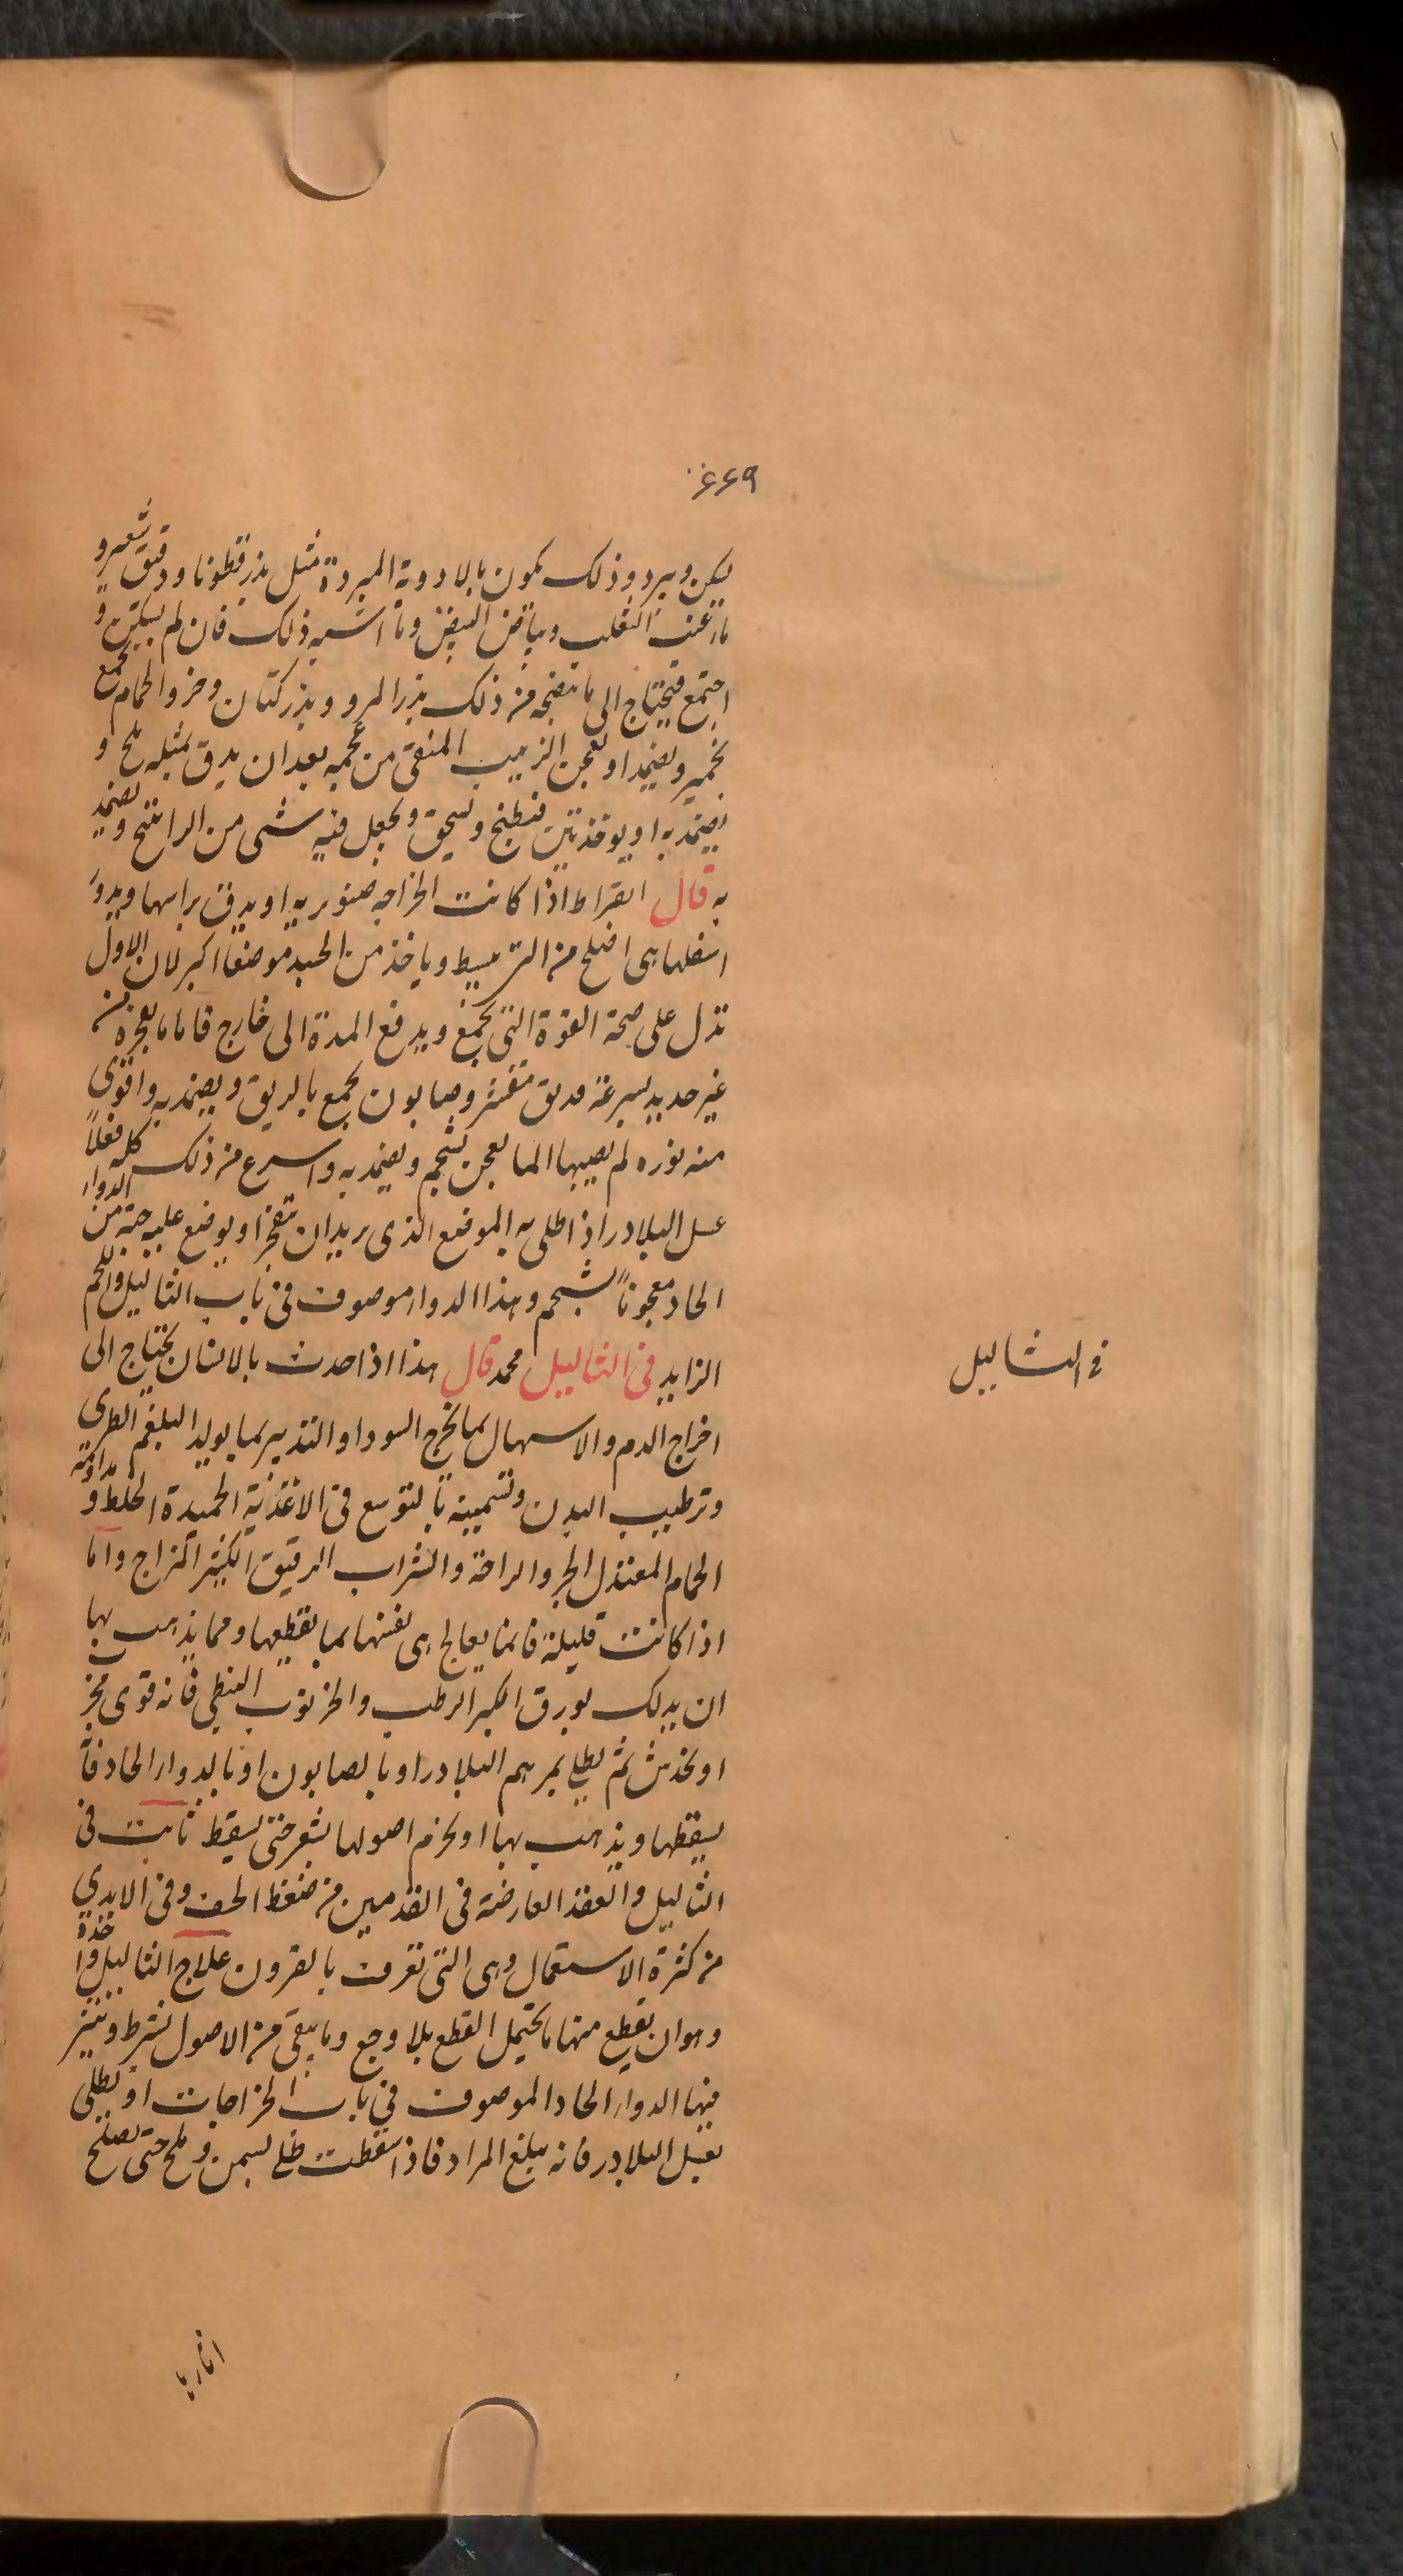 ۶۶۹
يسكن ويبرد وذلك يكون بالادوية المبردة مثل بذر قطونا ودقيق شعير و
ماء عنب الثعلب وبياض البيض وما اشبه ذلك فان لم يسكن و
اجتمع فيحتاج الى ما ينضجه من ذلك بذر المرو وبذر كتان وخرو الحمام يجمع
بخمير ويضمد او يعجن الزبيب المنقى من عجمه بعد ان يدق بمثله ملح و
يضمد به او يوخذ تين فيطبخ ويسحق ويجعل فيه شى من الراتينج ويضمد
به قال ابقراط اذا كانت الخراجه صنوبريه او يدق براسها ويدو
اسفلها هى اصلح من التى تبسيط وياخذ من الجسد موضعا اكبر لان الاول
تدل على صحة القوة التى تجمع ويدفع المدة الى خارج فاما ما يفجره من
غير حديد بسرعة مقشر وصابون يجمع بالريق ويضمد به واقوى
منه نوره لم يصيبها الما يعجن بشحم ويضمد به واسرع من ذلك كله فعلاً
عسل البلادر اذا طلى به الموضع الذى يريد ان يتفجر او يوضع عليه حبة من الدواء
الحاد معجوناً بشحم وهذا الدواء موصوف فى باب الثاليل واللحم
الزايد فى الثاليل محمد قال هذا اذا حدث بالانسان يحتاج الى
اخراج الدم والاسهال بما يخرج السودا والتدبير بما يولد البلغم الطرى
وترطيب البدن وتسمينه بالتوسع فى الاغذية الحميدة الخلط و مداومة
الحمام المعتدل الحر والراحة والشراب الرقيق الكثير المزاج واما
اذا كانت قليلة فانما يعالج هى نفسها بما يقطعها ومما يذهب بها
ان يدلك بورق الكبر الرطب والخرنوب النبطى فانه قوى مجر
او يخدش ثم يطلى بمرهم البلادر او بالصابون او بالدواء الحاد فا
يسقطها ويذهب بها او يخزم اصولها بشعر حتى يسقط ثابت فى
الثاليل والعقد العارضة فى القدمين من ضغط الخف وفى الايدي
من كثرة الاستعمال وهى التى تعرف بالقرون علاج الثاليل واحدة
وهو ان يقطع منها ما يحتمل القطع بلا وجع وما يبقى من الاصول يشرط وينثر
فيها الدواء الحاد الموصوف فى باب الخراجات او يطلى
بعسل البلادر فانه يبلغ المراد فاذا سقطت طلى بسمن وملح حتى يصلح
فى الثاليل